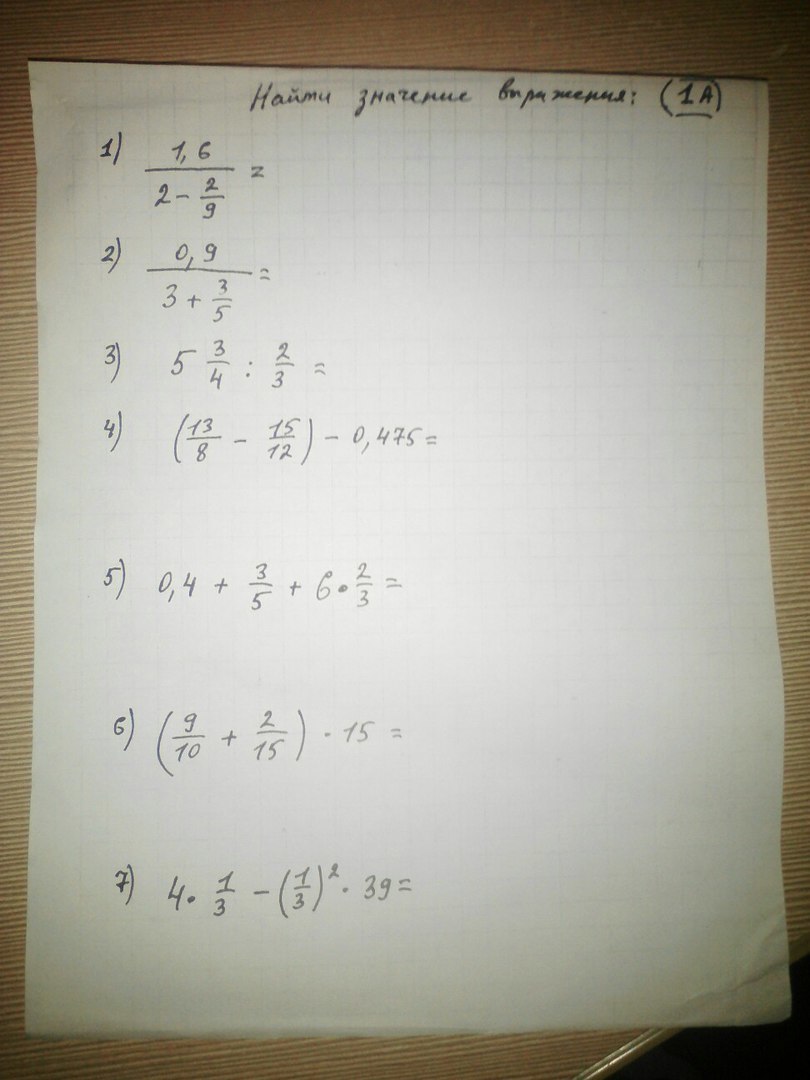 Найти значение выражения: (1А)
1) 1,6 / (2 - 2/9) =
2) 0,9 / (3 + 3/5) =
3) 5 3/4 : 2/3 =
4) (13/8 - 15/12) - 0,475 =
5) 0,4 + 3/5 + 6 · 2/3 =
6) (9/10 + 2/15) · 15 =
7) 4 · 1/3 - (1/3)² · 39 =